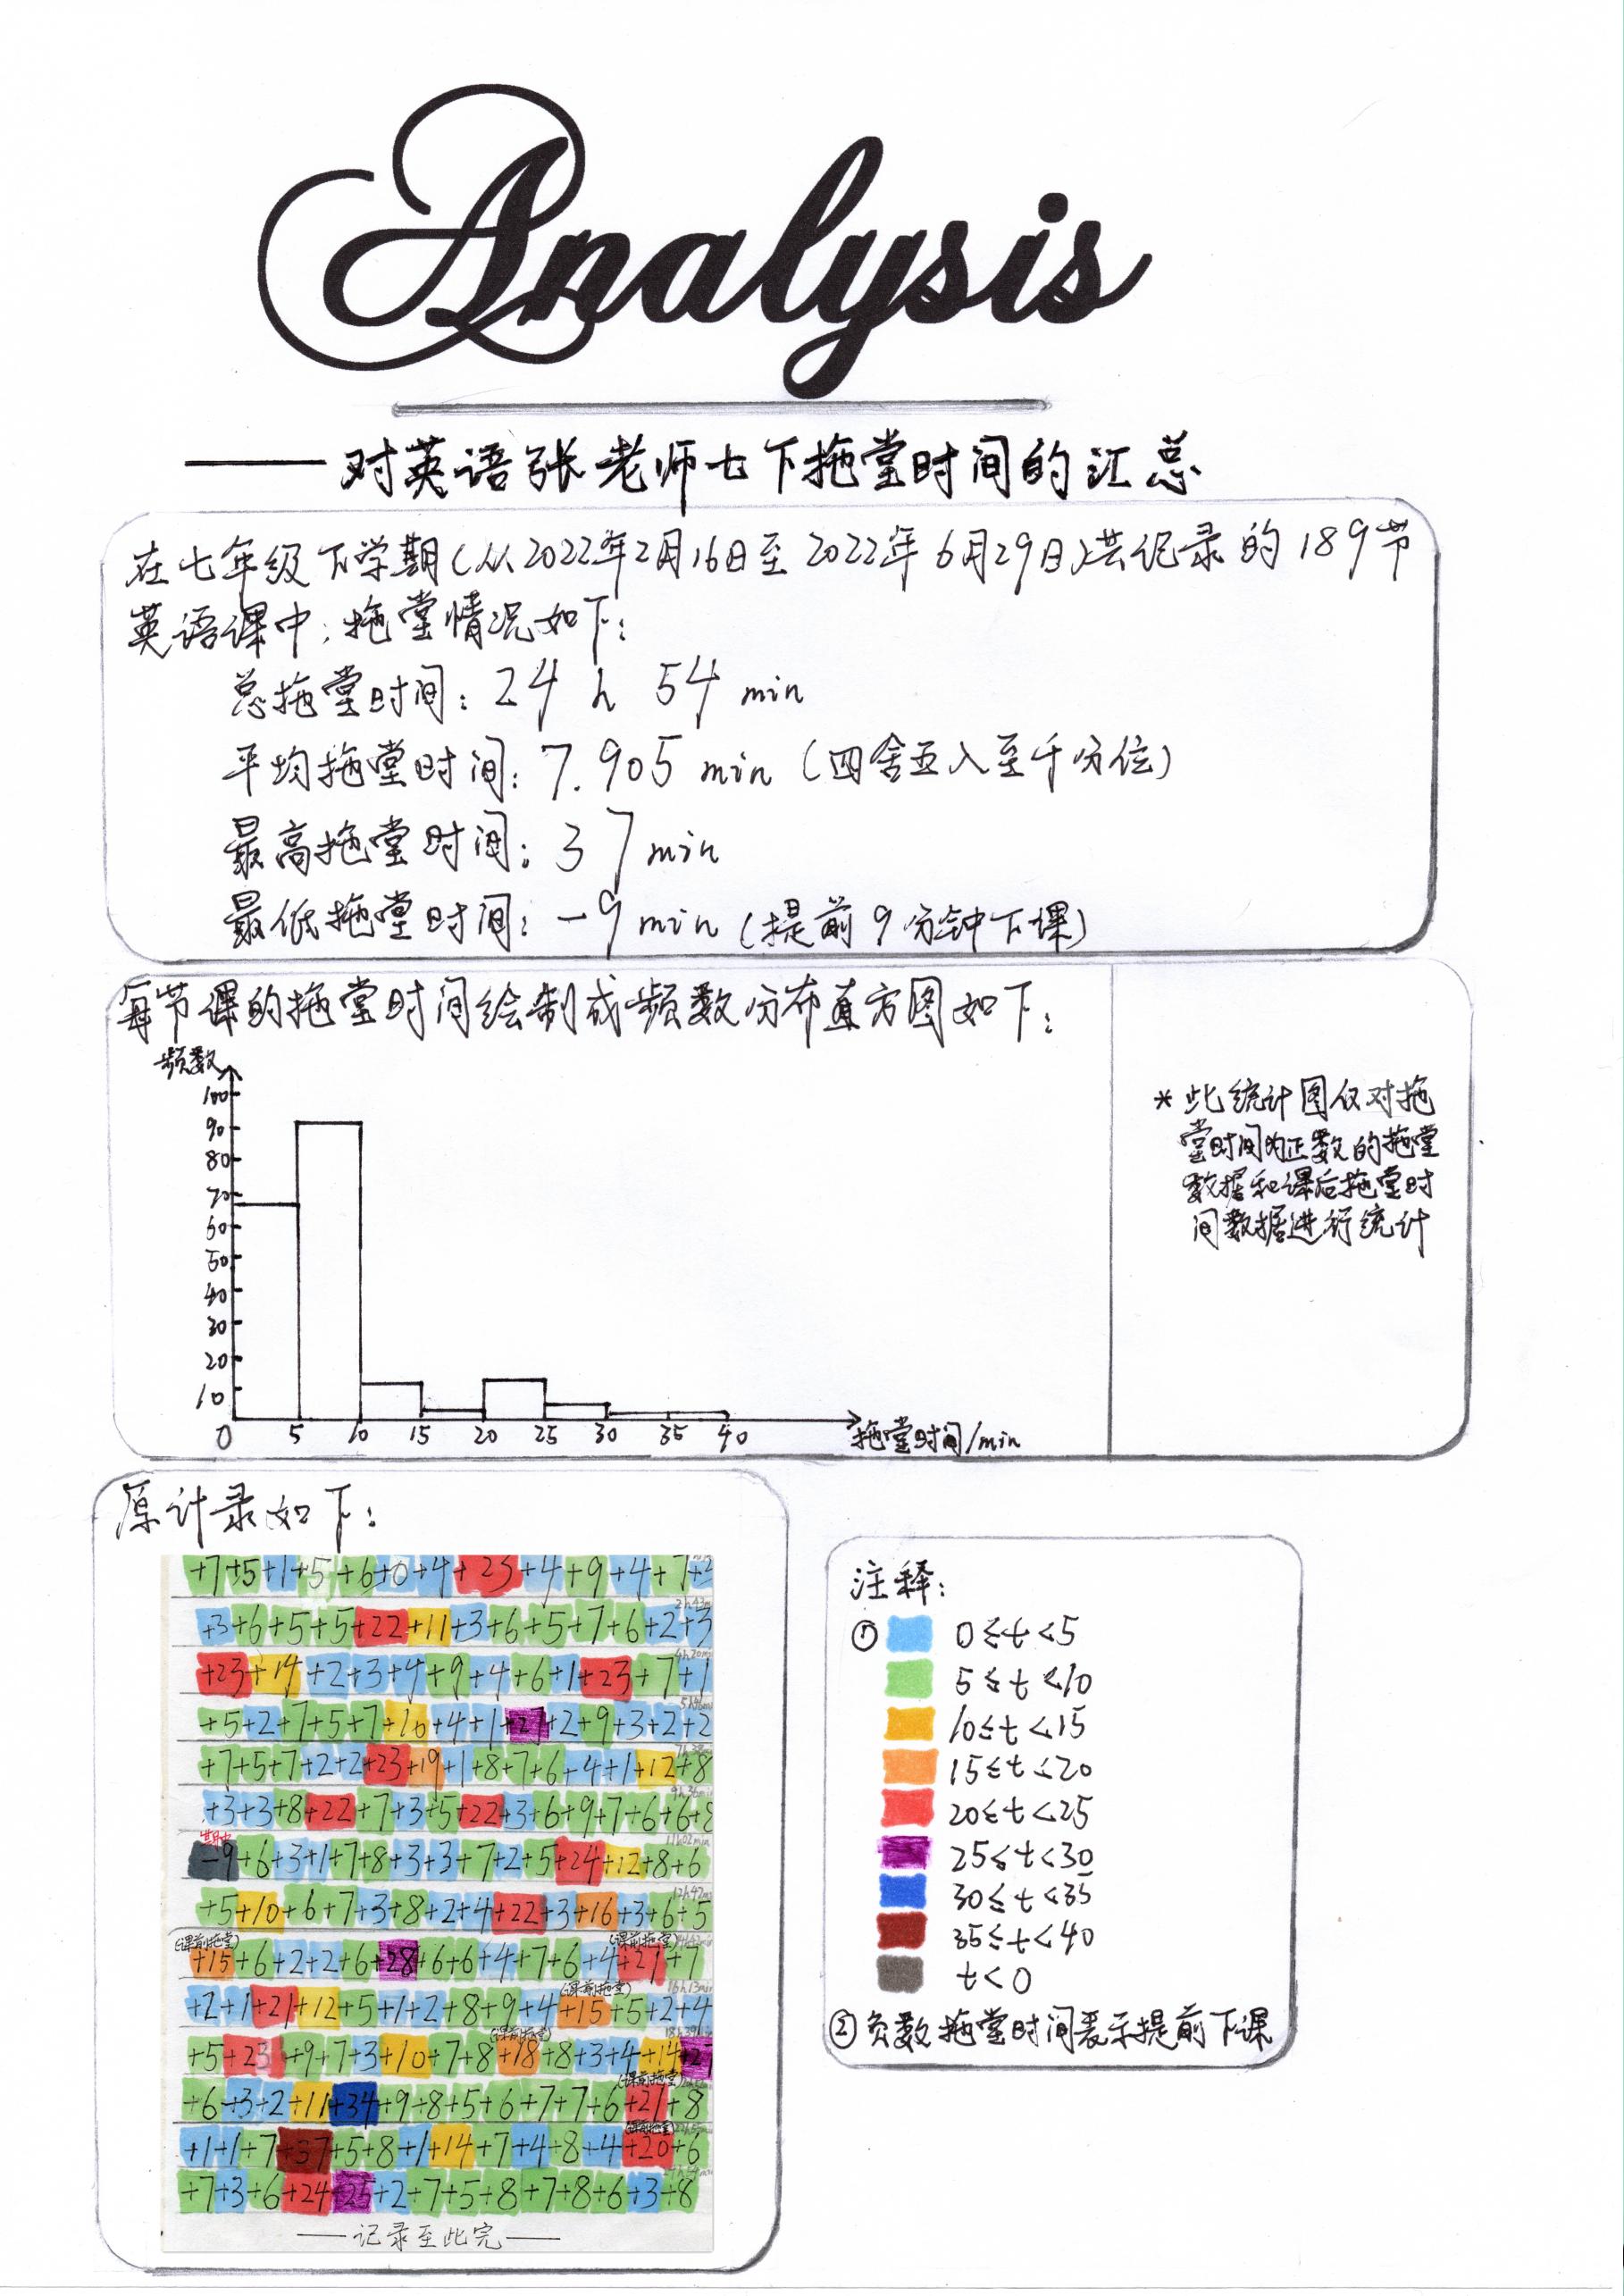 Analysis
——对英语张老师七下拖堂时间的汇总
在七年级下学期(从2022年2月16日至2022年6月29日)共纪录的189节
英语课中,拖堂情况如下:
总拖堂时间: 24 h 54 min
平均拖堂时间: 7.905 min (四舍五入至千分位)
最高拖堂时间: 37 min
最低拖堂时间: -9 min (提前9分钟下课)
每节课的拖堂时间绘制成频数分布直方图如下:
频数
100
90
80
70
60
50
40
30
20
10
0 5 10 15 20 25 30 35 40
拖堂时间/min
*此统计图仅对拖
堂时间为正数的拖堂
数据和课后拖堂时
间数据进行统计
原计录如下:
+7+5+1+5+6+0+4+23+4+9+4+7+2
2h43m
+3+6+5+5+22+11+3+6+5+7+6+2+3
4h20min
+23+14+2+3+4+9+4+6+1+23+7+1
5h46mi
+5+2+7+5+7+10+4+1+27+2+9+3+2+2
+7+5+7+2+2+23+19+1+8+7+6+4+1+12+8
9h36min
+3+3+8+22+7+3+5+22+3+6+9+7+6+6+8
期中
11h02min
-9+6+3+1+7+8+3+3+7+2+5+24+12+8+6
12h47m
+5+10+6+7+3+8+2+4+22+3+16+3+6+5
(课前拖堂) (课前拖堂)
+15+6+2+2+6+28+6+6+4+7+6+4+21+7
(课前拖堂) 16h13min
+2+1+21+12+5+1+2+8+9+4+15+5+2+4
(课前拖堂)
+5+23+9+7+3+10+7+8+18+8+3+4+14+27
(课前拖堂)
+6+3+2+11+34+9+8+5+6+7+7+6+21+8
(课前拖堂)
+1+1+7+37+5+8+1+14+7+4+8+4+20+6
24h54min
+7+3+6+24+25+2+7+5+8+7+8+6+3+8
——记录至此完——
注释:
① 0≤t<5
5≤t<10
10≤t<15
15≤t<20
20≤t<25
25≤t<30
30≤t<35
35≤t<40
t<0
②负数拖堂时间表示提前下课